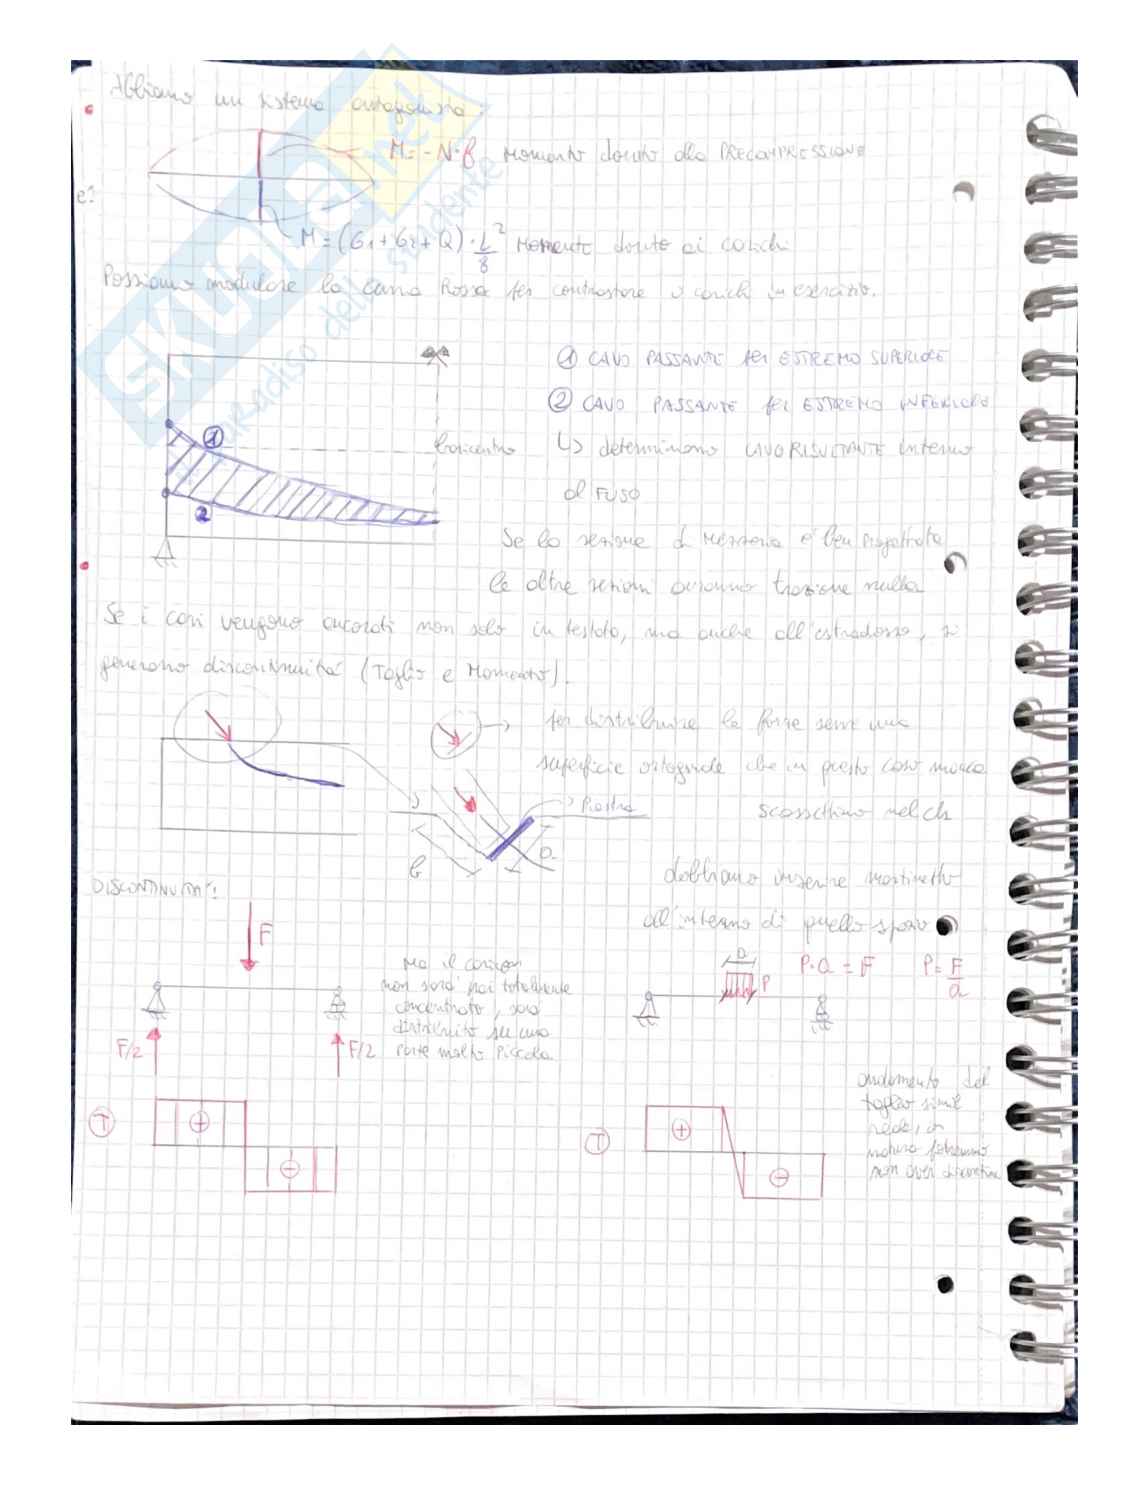 Abbiamo un sistema antagonista:
M = -N·f Momento dovuto alla PRECOMPRESSIONE
e?
M = (G1+G2+Q)·L²/8 Momento dovuto ai carichi
Possiamo modulare la curva Rossa per contrastare i carichi in esercizio.
① CAVO PASSANTE per ESTREMO SUPERIORE
② CAVO PASSANTE per ESTREMO INFERIORE
①
baricentro
↳ determinano CAVO RISULTANTE interno
al FUSO
②
Se la sezione di Mezzeria è ben progettata
le altre sezioni avranno trazione nulla
Se i cavi vengono ancorati non solo in testata, ma anche all'estradosso, si
generano discontinuità (Taglio e Momento).
per distribuire le forze serve una
superficie ortogonale che in questo caso manca
Piastra
b
a
dobbiamo inserire martinetto
all'interno di quello spazio
DISCONTINUITA':
F
Ma il carico
non sarà mai totalmente
concentrato, sarà
distribuito su una
parte molto piccola
F/2
F/2
a
P
P·a = F
P = F/a
andamento del
taglio
T
+
-
T
+
-
skuola.net
paradiso dello studente